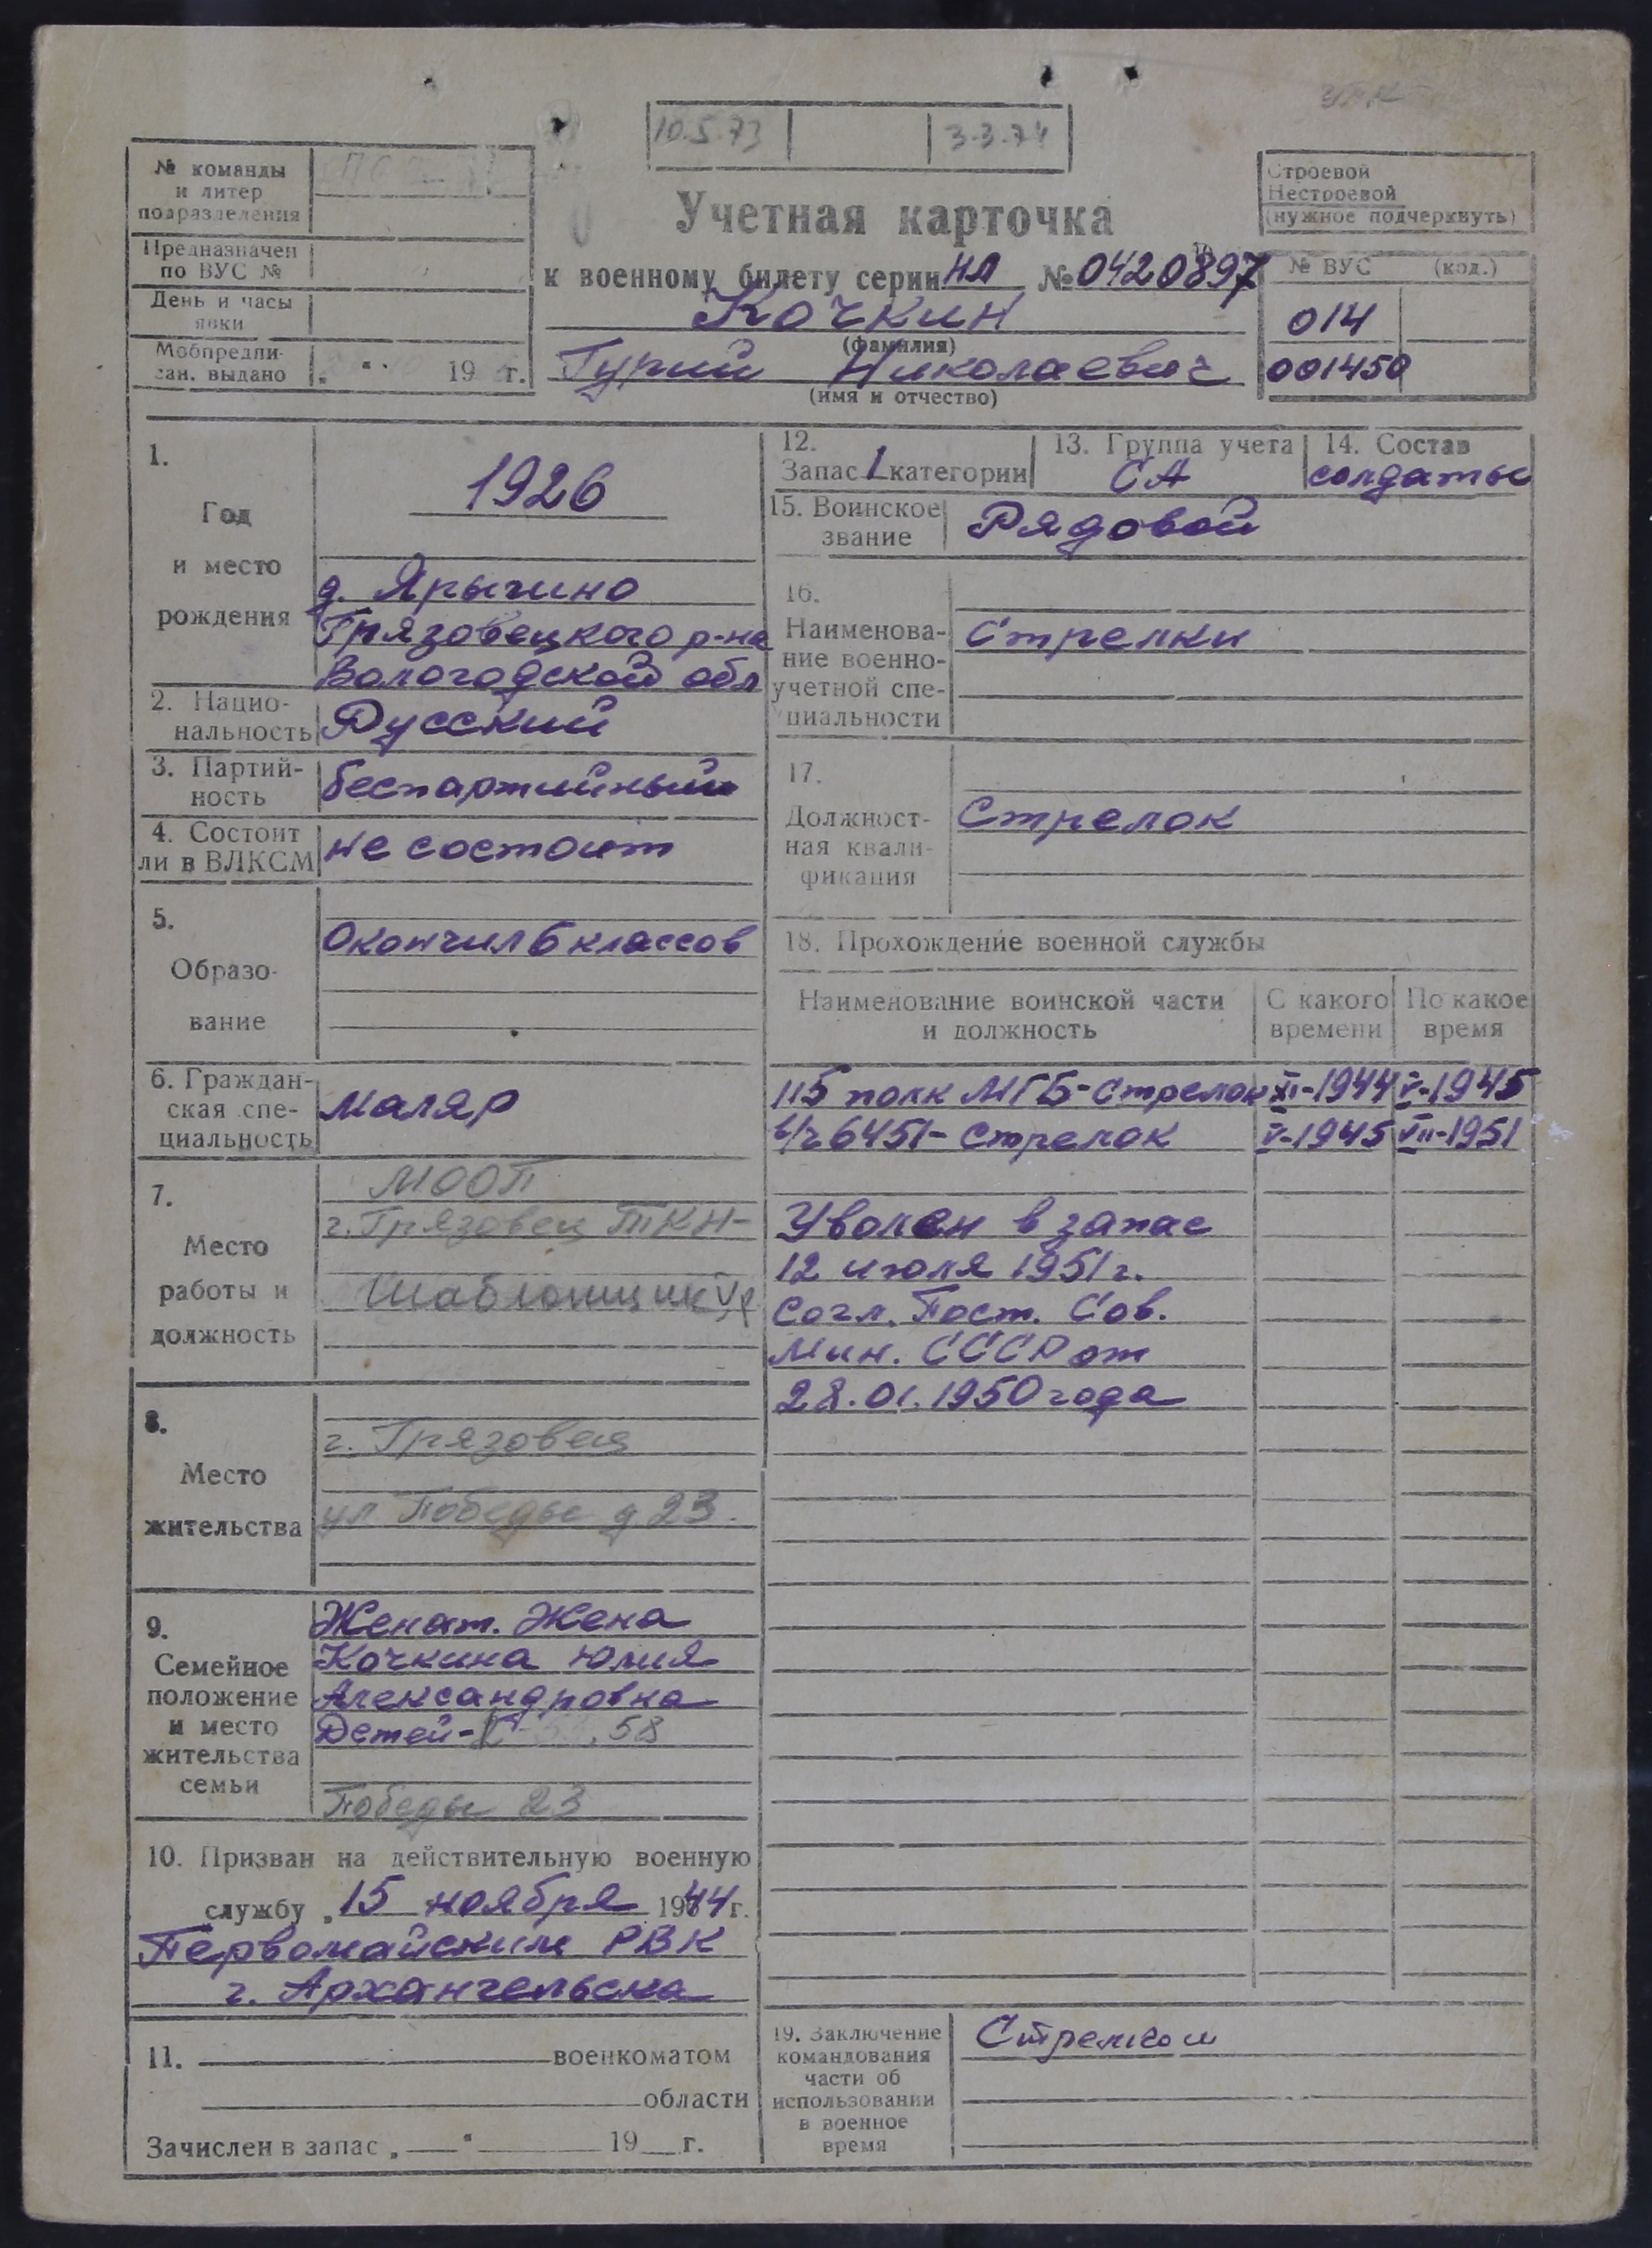 10.5.73 3-3.74
№ команды
и литер
подразделения
Предназначен
по ВУС №
День и часы
явки
Мобпредпи-
сан. выдано „ “ 19 г.
Учетная карточка
к военному билету серии НЛ № 0420897
Кочкин
(фамилия)
Гурий Николаевич
(имя и отчество)
Строевой
Нестроевой
(нужное подчеркнуть)
№ ВУС (код.)
014
001450
1.
Год
и место
рождения
1926
д. Ярыгино
Грязовецкого р-на
Вологодской обл
2. Нацио-
нальность Русский
3. Партий-
ность беспартийный
4. Состоит
ли в ВЛКСМ не состоит
5.
Образо-
вание
Окончил 6 классов
6. Граждан-
ская спе-
циальность маляр
7.
Место
работы и
должность
МООП
г. Грязовец ТКН-
Шаблонщик
8.
Место
жительства
г. Грязовец
ул Победы д 23.
9.
Семейное
положение
и место
жительства
семьи
Женат. Жена
Кочкина Юлия
Александровна
Детей- 58
Победы 23
10. Призван на действительную военную
службу „ 15 ноября 1944 г.
Первомайским РВК
г. Архангельска
11. военкоматом
области
Зачислен в запас „ “ 19 г.
12.
Запас 1 категории
13. Группа учета
СА
14. Состав
солдаты
15. Воинское
звание Рядовой
16.
Наименова-
ние военно-
учетной спе-
циальности
Стрелки
17.
Должност-
ная квали-
фикация
Стрелок
18. Прохождение военной службы
Наименование воинской части
и должность
С какого
времени
По какое
время
115 полк МГБ-Стрелок XI-1944 V-1945
в/ч 6451-Стрелок V-1945 VII-1951
Уволен в запас
12 июля 1951г.
Согл. Пост. Сов.
Мин. СССР от
28.01.1950 года
19. Заключение
командования
части об
использовании
в военное
время
Стрелком